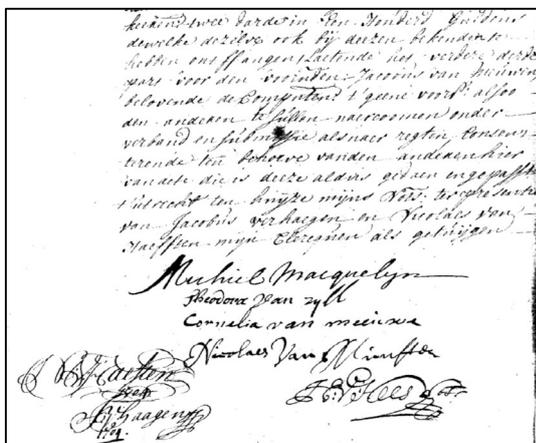 twee darde in Een Honderd Guldens
dewelke dezelve ook bij deezen bekenden te
hebben ontffangen, Laetende het verdere derde
part voor den voorinden Jacobus van Meeuwen
belovende de Comptend t'geene voorsz alsoo
den anderen te sullen naercoomen onder
verband en submissie als naer regten, Consen-
terende ten behoeve vanden anderen hier
van acte die is deeze aldus gedaen en gepasst
t'utrecht ten huijze mijns Nots. ter presentie
van Jacobus verhaegen en Nicolaes van
Haefften mijn Clercquen als getuijgen
Michiel Macquelyn
Theodora van zyll
Cornelia van meeuwe
Nicolaes Van